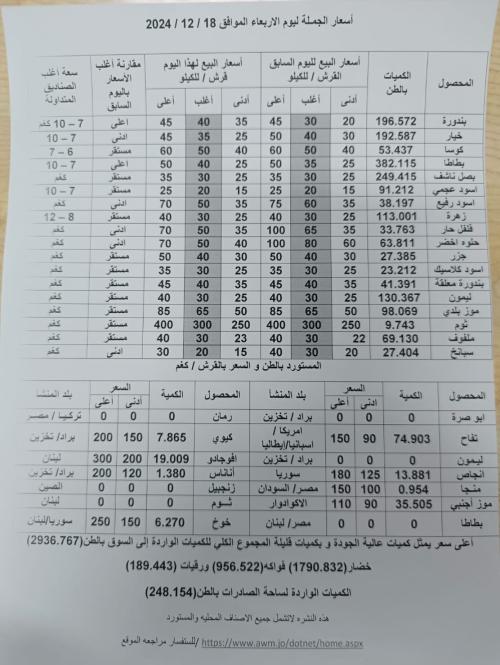 أسعار الجملة ليوم الاربعاء الموافق 18 / 12 / 2024
المحصول الكميات بالطن أسعار البيع لليوم السابق القرش / للكيلو أسعار البيع لهذا اليوم قرش / للكيلو مقارنة أغلب الأسعار باليوم السابق سعة أغلب الصناديق المتداولة
أدنى أغلب أعلى أدنى أغلب أعلى
بندورة 196.572 20 30 45 35 40 45 أعلى 7 – 10 كغم
خيار 192.587 30 40 50 25 35 45 أدنى 7 – 10
كوسا 53.437 40 50 60 40 50 60 مستقر 6 – 7
بطاطا 382.115 25 35 50 25 40 50 أعلى 7 – 10
بصل ناشف 249.415 25 30 35 25 30 35 مستقر كغم
اسود عجمي 91.212 15 20 25 15 20 25 مستقر 7 – 10
اسود رفيع 38.197 35 60 75 35 50 70 أدنى كغم
زهرة 113.001 25 30 40 25 30 40 مستقر 8 – 12
فلفل حار 33.763 35 65 100 35 50 70 أدنى كغم
حلوه اخضر 63.811 60 80 100 40 50 70 أدنى كغم
جزر 27.385 30 40 50 30 40 50 مستقر كغم
اسود كلاسيك 23.212 25 30 35 25 30 35 مستقر كغم
بندورة معلقة 41.391 35 40 45 35 40 45 مستقر كغم
ليمون 130.367 25 30 40 25 30 40 مستقر كغم
موز بلدي 98.069 50 65 85 50 65 85 مستقر كغم
ثوم 9.743 250 300 400 250 300 400 مستقر كغم
ملفوف 69.130 22 30 40 23 30 40 مستقر كغم
سبانخ 27.404 20 30 40 15 20 30 أدنى كغم
المستورد بالطن و السعر بالقرش / كغم
المحصول الكمية السعر بلد المنشأ المحصول الكمية السعر بلد المنشأ
أدنى أعلى أدنى أعلى
ابو صرة 0 0 0 براد / تخزين رمان 0 0 0 تركيا / مصر
تفاح 74.903 90 150 امريكا / اسبانيا/إيطاليا كيوي 7.865 150 200 براد/ تخزين
ليمون 0 0 0 براد / تخزين افوجادو 19.009 200 300 لبنان
انجاص 13.881 125 180 سوريا أناناس 1.380 120 200 براد/ تخزين
منجا 0.954 100 150 مصر/ السودان زنجبيل 0 0 0 الصين
موز أجنبي 35.505 90 110 الاكوادوار ثـوم 0 0 0 لبنان
بطاطا 0 0 0 مصر/ لبنان خوخ 6.270 150 250 سوريا/لبنان
أعلى سعر يمثل كميات عالية الجودة و بكميات قليلة المجموع الكلي للكميات الواردة إلى السوق بالطن(2936.767)
خضار(1790.832) فواكه(956.522) ورقيات (189.443)
الكميات الواردة لساحة الصادرات بالطن(248.154)
هذه النشره لاتشمل جميع الاصناف المحليه والمستورد
للاستفسار مراجعه الموقع https://www.awm.jo/dotnet/home.aspx/